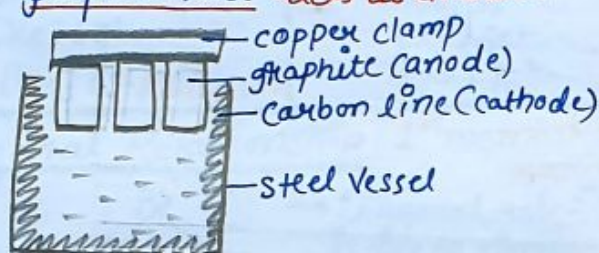 copper clamp
graphite (anode)
carbon line (cathode)
steel vessel